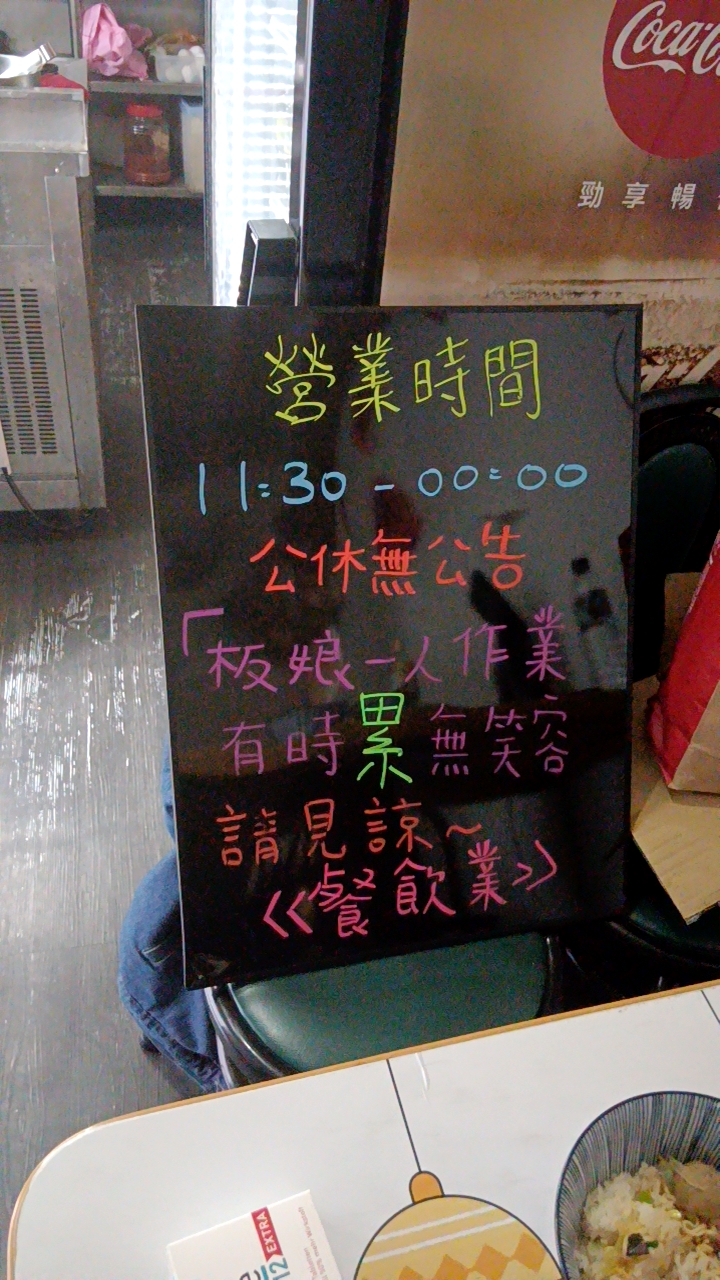 Coca-Co
勁享暢
營業時間
11:30 - 00:00
公休無公告
「板娘一人作業
有時累無笑容
請見諒~
《餐飲業》
EXTRA
12